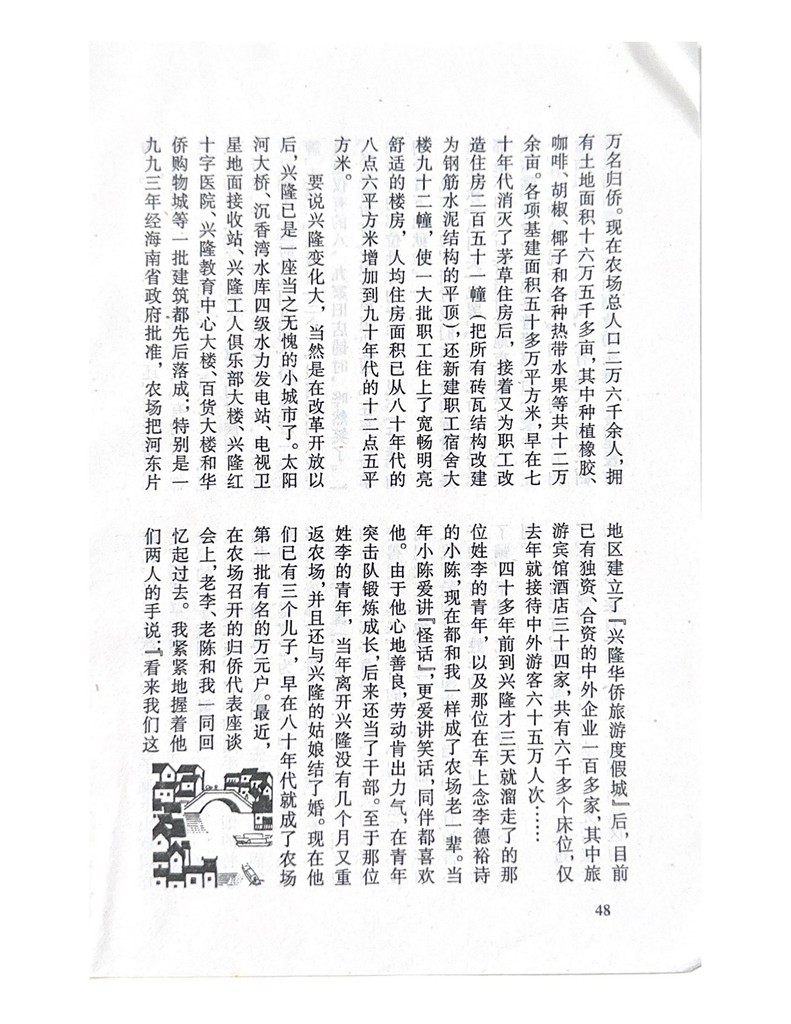 万名归侨。现在农场总人口二万六千余人，拥
有土地面积十六万五千多亩，其中种植橡胶、
咖啡、胡椒、椰子和各种热带水果等共十二万
余亩。各项基建面积五十多万平方米，早在七
十年代消灭了茅草住房后，接着又为职工改
造住房二百五十一幢（把所有砖瓦结构改建
为钢筋水泥结构的平顶），还新建职工宿舍大
楼九十二幢，使一大批职工住上了宽畅明亮
舒适的楼房，人均住房面积已从八十年代的
八点六平方米增加到九十年代的十二点五平
方米。
要说兴隆变化大，当然是在改革开放以
后，兴隆已是一座当之无愧的小城市了。太阳
河大桥、沉香湾水库四级水力发电站、电视卫
星地面接收站、兴隆工人俱乐部大楼、兴隆红
十字医院、兴隆教育中心大楼、百货大楼和华
侨购物城等一批建筑都先后落成；特别是一
九九三年经海南省政府批准，农场把河东片
地区建立了『兴隆华侨旅游度假城』后，目前
已有独资、合资的中外企业一百多家，其中旅
游宾馆酒店三十四家，共有六千多个床位，仅
去年就接待中外游客六十五万人次……
四十多年前到兴隆才三天就溜走了的那
位姓李的青年，以及那位在车上念李德裕诗
的小陈，现在都和我一样成了农场老一辈。当
年小陈爱讲『怪话』，更爱讲笑话，同伴都喜欢
他。由于他心地善良，劳动肯出力气，在青年
突击队锻炼成长，后来还当了干部。至于那位
姓李的青年，当年离开兴隆没有几个月又重
返农场，并且还与兴隆的姑娘结了婚。现在他
们已有三个儿子，早在八十年代就成了农场
第一批有名的万元户。最近，
在农场召开的归侨代表座谈
会上，老李、老陈和我一同回
忆起过去。我紧紧地握着他
们两人的手说：『看来我们这
48